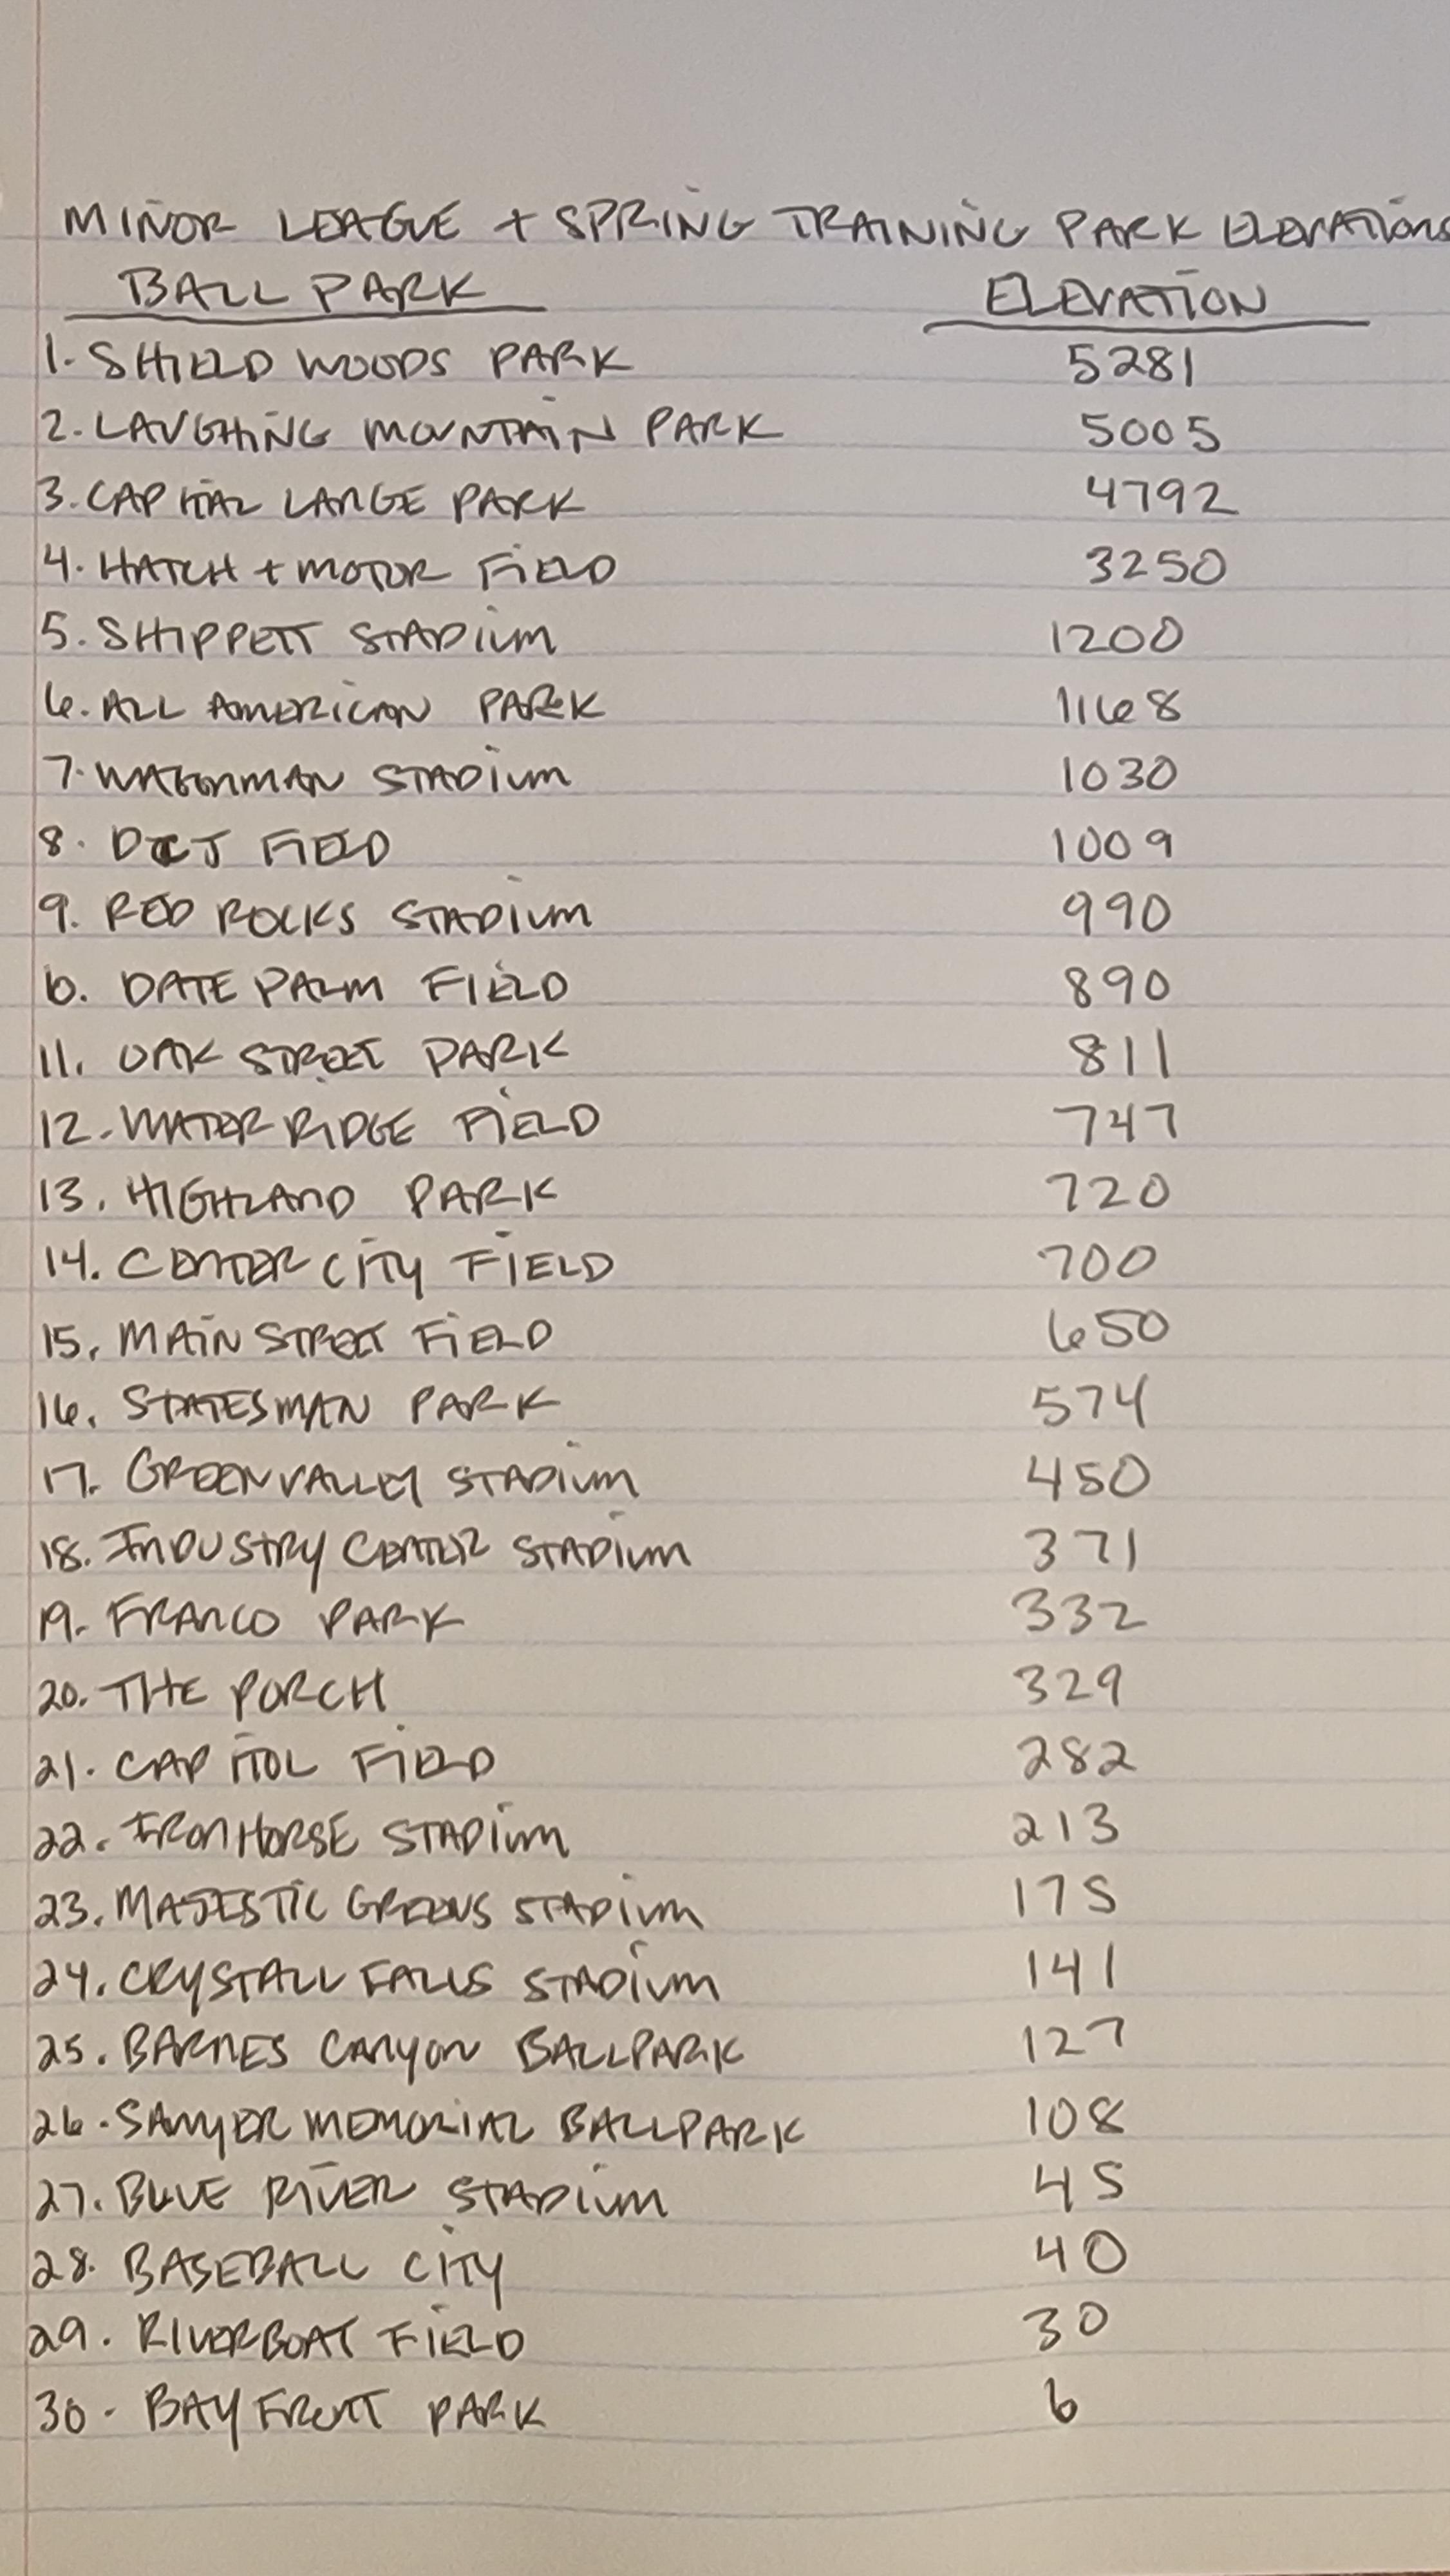 MINOR LEAGUE + SPRING TRAINING PARK ELEVATIONS
BALL PARK ELEVATION
1. SHIELD WOODS PARK 5281
2. LAUGHING MOUNTAIN PARK 5005
3. CAPITAL LARGE PARK 4792
4. HATCH + MOTOR FIELD 3250
5. SHIPPETT STADIUM 1200
6. ALL AMERICAN PARK 1168
7. WAGONMAN STADIUM 1030
8. FIELD 1009
9. RED ROCKS STADIUM 990
10. DATE PALM FIELD 890
11. OAK STREET PARK 811
12. WATER RIDGE FIELD 747
13. HIGHLAND PARK 720
14. CENTER CITY FIELD 700
15. MAIN STREET FIELD 650
16. STATESMAN PARK 574
17. GREEN VALLEY STADIUM 450
18. INDUSTRY CENTER STADIUM 371
19. FRANCO PARK 332
20. THE PORCH 329
21. CAPITOL FIELD 282
22. IRON HORSE STADIUM 213
23. MAJESTIC GREENS STADIUM 175
24. CRYSTALL FALLS STADIUM 141
25. BARNES CANYON BALLPARK 127
26. SAWYER MEMORIAL BALLPARK 108
27. BLUE RIVER STADIUM 45
28. BASEBALL CITY 40
29. RIVERBOAT FIELD 30
30. BAY FRUIT PARK 6